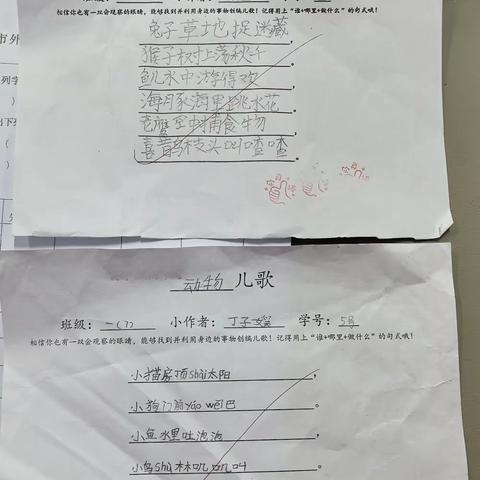 相信你也有一双会观察的眼睛,能够找到并利用身边的事物创编儿歌!记得用上“谁+哪里+做什么”的句式哦!
兔子草地捉迷藏,
猴子树上荡秋千。
鱼儿水中游得欢,
海豚海里跳水花。
老鹰空中捕食物,
喜鹊枝头叫喳喳。
动物 儿歌
班级: 一(7) 小作者: 学号: 5号
相信你也有一双会观察的眼睛,能够找到并利用身边的事物创编儿歌!记得用上“谁+哪里+做什么”的句式哦!
小猫房顶shài太阳,
小狗门前yáo wěi巴。
小鱼水里吐泡泡,
小鸟shù林叽叽叫。